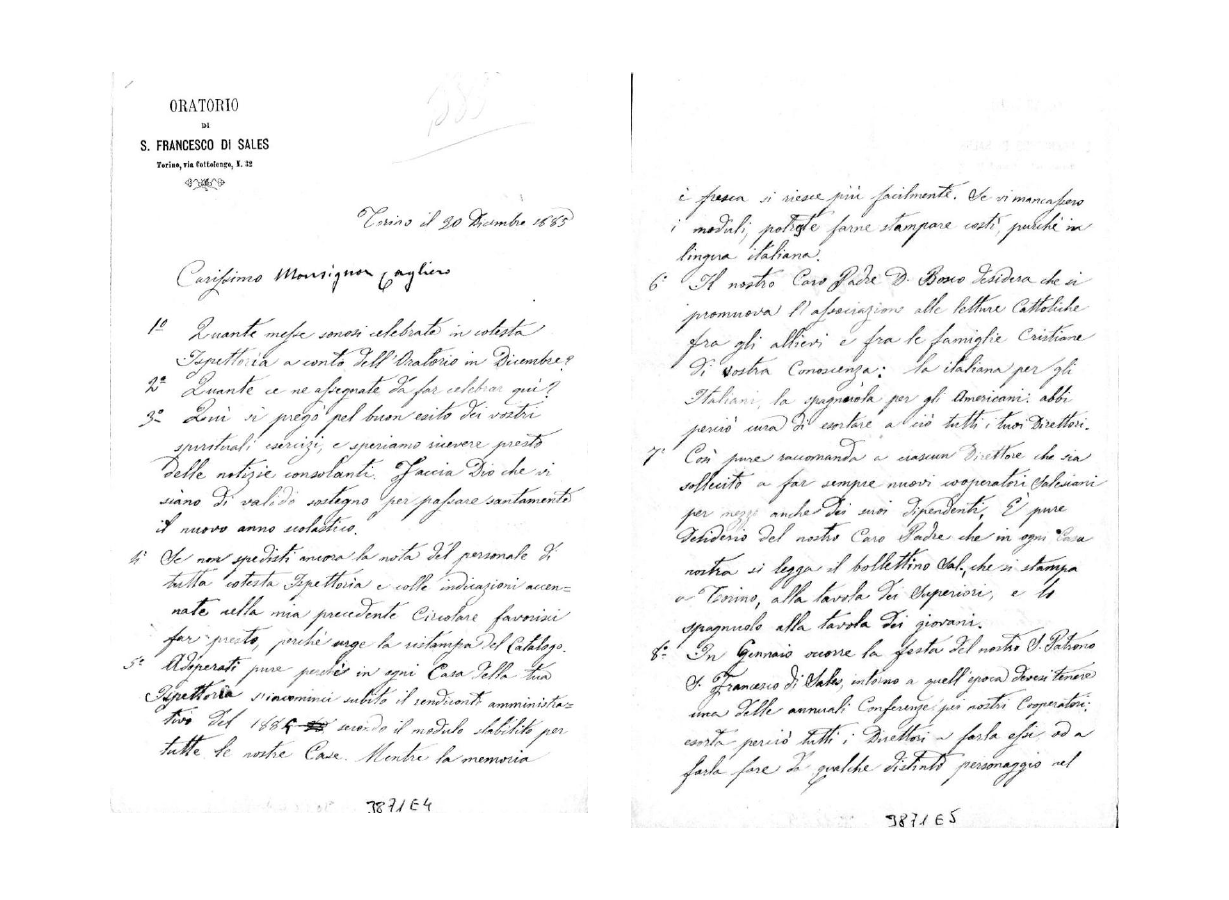 ORATORIO
DI
S. FRANCESCO DI SALES
Torino, via Cottolengo, N. 32
Torino il 20 Dicembre 1885
Carissimo Monsignor Cagliero
1º Quante messe sonosi celebrate in cotesta
Ispettoria a conto dell'Oratorio in Dicembre?
2º Quante ce ne assegnate da far celebrar qui?
3º Qui si pregò pel buon esito dei vostri
spirituali esercizi, e speriamo ricevere presto
delle notizie consolanti. Faccia Dio che vi
siano di valido sostegno per passare santamente
il nuovo anno scolastico.
4º Se non spedisti ancora la nota del personale di
tutta cotesta Ispettoria e colle indicazioni accen=
nate nella mia precedente Circolare favorisci
far presto, perchè urge la ristampa del Catalogo.
5º Adoperati pure perchè in ogni Casa della tua
Ispettoria s'incominci subito il rendiconto amministra=
tivo del 1885 secondo il modulo stabilito per
tutte le nostre Case. Mentre la memoria
9871E4
è fresca si riesce più facilmente. Se vi mancassero
i moduli, potreste farne stampare costì, purchè in
lingua italiana.
6º Il nostro Caro Padre D. Bosco desidera che si
promuova l'associazione alle letture Cattoliche
fra gli allievi e fra le famiglie Cristiane
di vostra Conoscenza: la italiana per gli
Italiani, la spagnuola per gli Americani: abbi
perciò cura di esortare a ciò tutti i tuoi Direttori.
7º Così pure raccomanda a ciascun Direttore che sia
sollecito a far sempre nuovi cooperatori Salesiani
per mezzo anche dei suoi dipendenti. È pure
desiderio del nostro Caro Padre che in ogni Casa
nostra si legga il bollettino Sal., che si stampa
a Torino, alla tavola dei Superiori, e lo
spagnuolo alla tavola dei giovani.
8º In Gennaio occorre la festa del nostro S. Patrono
S. Francesco di Sales, intorno a quell'epoca devesi tenere
una delle annuali Conferenze pei nostri Cooperatori:
esorta perciò tutti i Direttori a farla essi, od a
farla fare da qualche distinto personaggio nel
9871E5